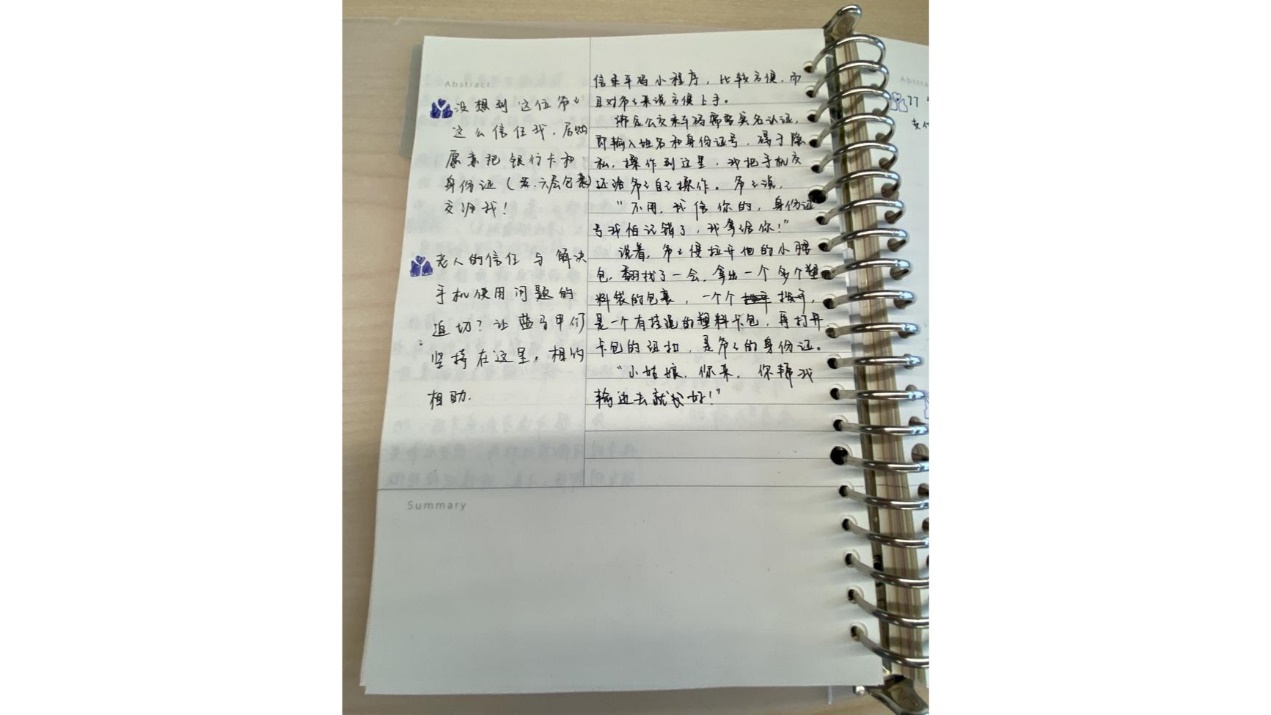 Abstract
没想到这位爷爷
这么信任我,后期
愿意把银行卡和
身份证(五、六层包裹)
交给我!
老人的信任与解决
手机使用问题的
迫切?让蓝马甲们
坚持在这里,相约
相助.
信乘车码小程序,比较方便,而
且对爷爷来说方便上手。
绑定公交乘车码需要实名认证,
即输入姓名和身份证号,碍于隐
私,操作到这里,我把手机交
还给爷爷自己操作。爷爷说,
“不用,我信你的,身份证
号我怕记错了,我拿给你!”
说着,爷爷便拉开他的小腰
包,翻找了一会,拿出一个多个塑
料袋的包裹,一个个
是一个有按扣的塑料卡包,再打开
卡包的纽扣,是爷爷的身份证。
“小姑娘,你来,你帮我
输进去就好!”
Summary